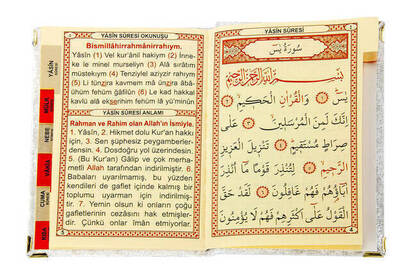 YÂSÎN SÛRESİ OKUNUŞU
Bismillâhirrahmânirrahıym.
Yâsîn (1) Vel kur'ânil hakiym (2) İnne-
ke le minel murseliyn (3) Alâ sırâtım
müstekıym (4) Tenziylel aziyzir rahıym
(5) Li tünzira kavmen mâ ünzira âbâ-
ühüm fehüm ğâfilûn (6) Le kad hakkal
kavlü alâ ekserihim fehüm lâ yü'minûn
YÂSÎN SÛRESİ ANLAMI
Rahman ve Rahim olan Allah'ın İsmiyle.
1. Yâsîn, 2. Hikmet dolu Kur'an hakkı
için, 3. Sen şüphesiz peygamberler-
densin. 4. Dosdoğru yol üzerindesin.
5. (Bu Kur'an) Gâlip ve çok merha-
metli Allah tarafından indirilmiştir. 6.
Babaları uyarılmamış, bu yüzden
kendileri de gaflet içinde kalmış bir
toplumu uyarman için indirilmiş-
tir. 7. Yemin olsun ki onların çoğu
gafletlerinin cezasını hak etmişler-
dir. Çünkü onlar iman etmiyorlar.
YÂSÎN
MÜLK
NEBE
VAKIA
CUMA
DUA
YÂSÎN SÛRESİ
سُورَةُ يٰسٓ
بِسْمِ اللّٰهِ الرَّحْمٰنِ الرَّحِيمِ
يٰسٓ ﴿١﴾ وَالْقُرْاٰنِ الْحَكِيمِ ﴿٢﴾
اِنَّكَ لَمِنَ الْمُرْسَلِينَ ﴿٣﴾ عَلٰى
صِرَاطٍ مُسْتَقِيمٍ ﴿٤﴾ تَنْزِيلَ الْعَزِيزِ
الرَّحِيمِ ﴿٥﴾ لِتُنْذِرَ قَوْمًا مَٓا اُنْذِرَ
اٰبَٓاؤُ۬هُمْ فَهُمْ غَافِلُونَ ﴿٦﴾ لَقَدْ حَقَّ
الْقَوْلُ عَلٰٓى اَكْثَرِهِمْ فَهُمْ لَا يُؤْمِنُونَ